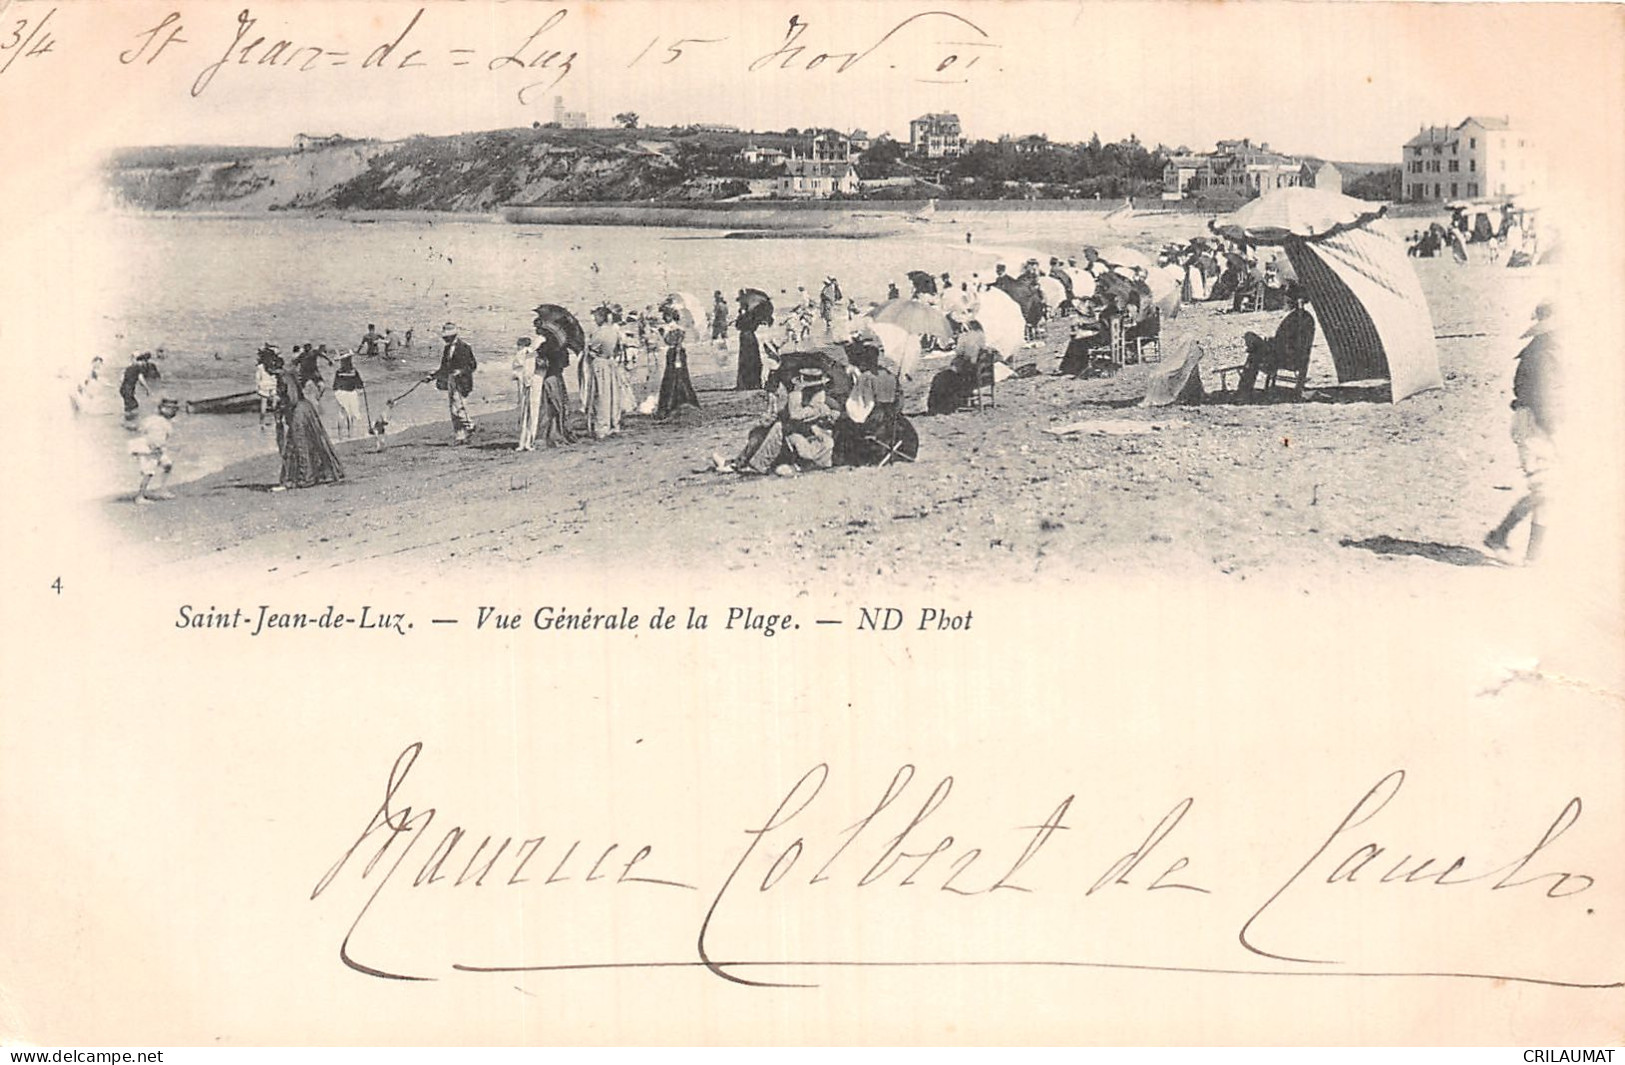 3/4 St Jean=de=Luz 15 Nov. 01.
4
Saint-Jean-de-Luz. — Vue Générale de la Plage. — ND Phot
Maurice Colbert de
www.delcampe.net
CRILAUMAT